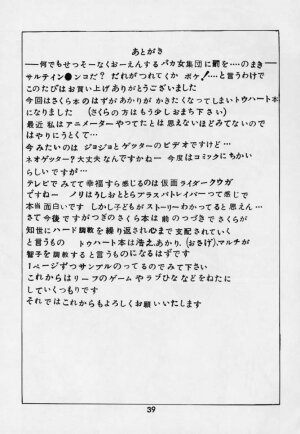 あとがき
──何でもせっそーなくおーえんするバカ女集団に罰を‥‥のまき
サルテイン●ンコだ? だれがつれてくか ボケ!‥‥と言うわけで
このたびはお買い上げありがとうございました
今回はさくら本のはずがありがかきたくなってしまいトウハート本
になりました (さくらの方はもう少しおまち下さい)
最近 私はアニメーターやってたとは思えないほどみてないので
はやりにうとくて‥‥
今 みたいのは ジョジョとゲッターのビデオですけど‥‥
ネオゲッター? 大丈夫なんですかねー 今度はコミックにちかい
らしいですが‥‥
テレビでみてて幸福すら感じるのは仮面ライダークウガ
ですねー ノリはうしおととらプラスパトレイバーって感じで
本当面白いです しかし子どもがストーリーわかってると思えん‥‥
さて今後ですがつぎのさくら本は前のつづきでさくらが
知世にハード調教を繰り返されゆまで支配されていく
と言うもの トゥハート本は浩え、あかり、(おさげ)、マルチが
智子を調教すると言うものになるはずです
1ページずつサンプルのってるのでみて下さい
これからはリーフのゲームやラブひななどをねたに
していくつもりです
それではこれからもよろしくお願いいたします
39